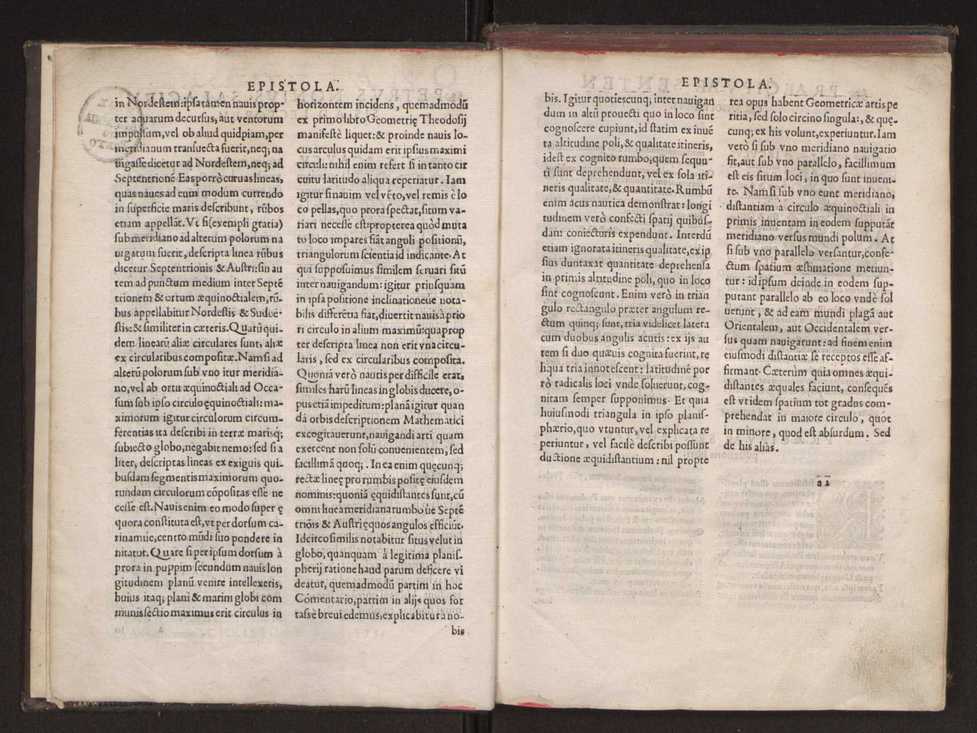 EPISTOLA.
in Nordestem: ipsa tamen nauis prop-
ter aquarum decursus, aut ventorum
impulsum, vel ob aliud quidpiam, per
meridianum transuecta fuerit, neq; na
uigasse dicetur ad Nordestem, neq; ad
Septentrionē. Eas porrò curuas lineas,
quas naues ad eum modum currendo
in superficie maris describunt, rūbos
etiam appellāt. Vt si (exempli gratia)
sub meridiano ad alterum polorum na
uigatum fuerit, descripta linea rūbus
dicetur Septentrionis & Austri: sin au
tem ad punctum medium inter Septē
trionem & ortum æquinoctialem, rū-
bus appellabitur Nordestis & Suduē-
stis: & similiter in cæteris. Quarū qui-
dem linearū aliæ circulares sunt, aliæ
ex circularibus compositæ. Nam si ad
alterū polorum sub vno itur meridia-
no, vel ab ortu æquinoctiali ad Occa-
sum sub ipso circulo ęquinoctiali: ma-
ximorum igitur circulorum circum-
ferentias ita describi in terræ marisq;
subiecto globo, negabit nemo: sed si a
liter, descriptas lineas ex exiguis qui-
busdam segmentis maximorum quo-
rundam circulorum cōpositas esse ne
cesse est. Nauis enim eo modo super ę
quora constituta est, vt per dorsum ca-
rinamue, centro mūdi suo pondere in
nitatur. Quare si per ipsum dorsum à
prora in puppim secundum nauis lon
gitudinem planū venire intellexeris,
huius itaq; plani & marini globi com
munis sectio maximus erit circulus in
horizontem incidens, quemadmodū
ex primo libro Geometrię Theodosij
manifestè liquet: & proinde nauis lo-
cus arculus quidam erit ipsius maximi
circuli: nihil enim refert si in tanto cir
cuitu latitudo aliqua reperiatur. Iam
igitur si nauim vel vēto, vel remis è lo
co pellas, quo prora spectat, situm va-
riari necesse est: propterea quòd muta
to loco impares fiāt anguli positionū,
triangulorum scientia id indicante. At
qui supposuimus similem seruari sitū
inter nauigandum: igitur priusquam
in ipsa positione inclinationeue nota-
bilis differētia fiat, diuertit nauis à prio
ri circulo in alium maximū: quaprop
ter descripta linea non erit vna circu-
laris, sed ex circularibus composita.
Quoniā verò nautis per difficile erat,
similes harū lineas in globis ducere, o-
pus etiā impeditum: planā igitur quan
dā orbis descriptionem Mathematici
excogitauerunt, nauigandi arti quam
exercent non solū conuenientem, sed
facillimā quoq;. In ea enim quęcunq;
rectæ lineę pro rumbis positę eiusdem
nominis: quoniā ęquidistantes sunt, cū
omni linea meridiana rumboue Septē
triōis & Austri ęquos angulos efficiūt.
Idcirco similis notabitur situs velut in
globo, quanquam à legitima planis-
pherij ratione haud parum deficere vi
deatur, quemadmodū partim in hoc
Comentario, partim in alijs quos for
tasse breui edemus, explicabitur à no-
bis
EPISTOLA.
bis. Igitur quotiescunq; inter nauigan
dum in altū prouecti quo in loco sint
cognoscere cupiunt, id statim ex inuē
ta altitudine poli, & qualitate itineris,
idest ex cognito rumbo, quem sequu-
ti sunt deprehendunt, vel ex sola iti-
neris qualitate, & quantitate. Rumbū
enim acus nautica demonstrat: longi
tudinem verò confecti spatij quibus-
dam coniecturis expendunt. Interdū
etiam ignorata itineris qualitate, ex ip
sius duntaxat quantitate deprehensa
in primis altitudine poli, quo in loco
sint cognoscunt. Enim verò in trian
gulo rectangulo præter angulum re-
ctum quinq; sunt, tria videlicet latera
cum duobus angulis acutis: ex ijs au
tem si duo quæuis cognita fuerint, re
liqua tria innotescent: latitudinē por
rò radicalis loci vnde soluerunt, cog-
nitam semper supponimus. Et quia
huiusmodi triangula in ipso planis-
phærio, quo vtuntur, vel explicata re
periuntur, vel facilè describi possunt
ductione æquidistantium: nil propte
rea opus habent Geometricæ artis pe
ritia, sed solo circino singula, & quę-
cunq; ex his volunt, experiuntur. Iam
verò si sub vno meridiano nauigatio
fit, aut sub vno parallelo, facillimum
est eis situm loci, in quo sunt inueni-
re. Nam si sub vno eunt meridiano,
distantiam à circulo æquinoctiali in
primis inuentam in eodem supputāt
meridiano versus mundi polum. At
si sub vno parallelo versantur, confe-
ctum spatium æstimatione metiun-
tur: id ipsum deinde in eodem sup-
putant parallelo ab eo loco vnde sol
uerunt, & ad eam mundi plagā aut
Orientalem, aut Occidentalem ver-
sus quam nauigarunt: ad finem enim
eiusmodi distantiæ se receptos esse af-
firmant. Cæterùm quia omnes æqui-
distantes æquales faciunt, consequēs
est vt idem spatium tot gradus com-
prehendat in maiore circulo, quot
in minore, quod est absurdum. Sed
de his aliàs.